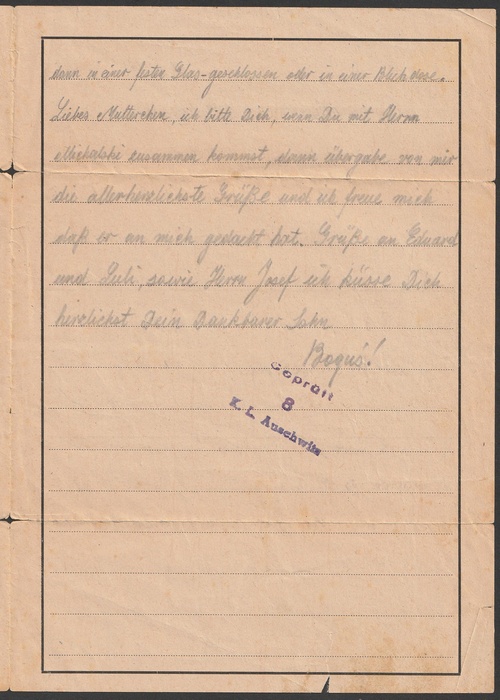 dann in einer festen Glas-geschlossen oder in einer Blechdose.
Liebes Mutterchen, ich bitte Dich, wenn Du mit Herrn
Michalski zusammen kommst, dann übergabe von mir
die allerherzlichste Grüße und ich freue mich
daß er an mich gedacht hat. Grüße an Eduard
und Luli sowie Herrn Josef ich küsse Dich
herzlichst Dein Dankbarer Sohn
Boguś!
Geprüft
8
K. L. Auschwitz